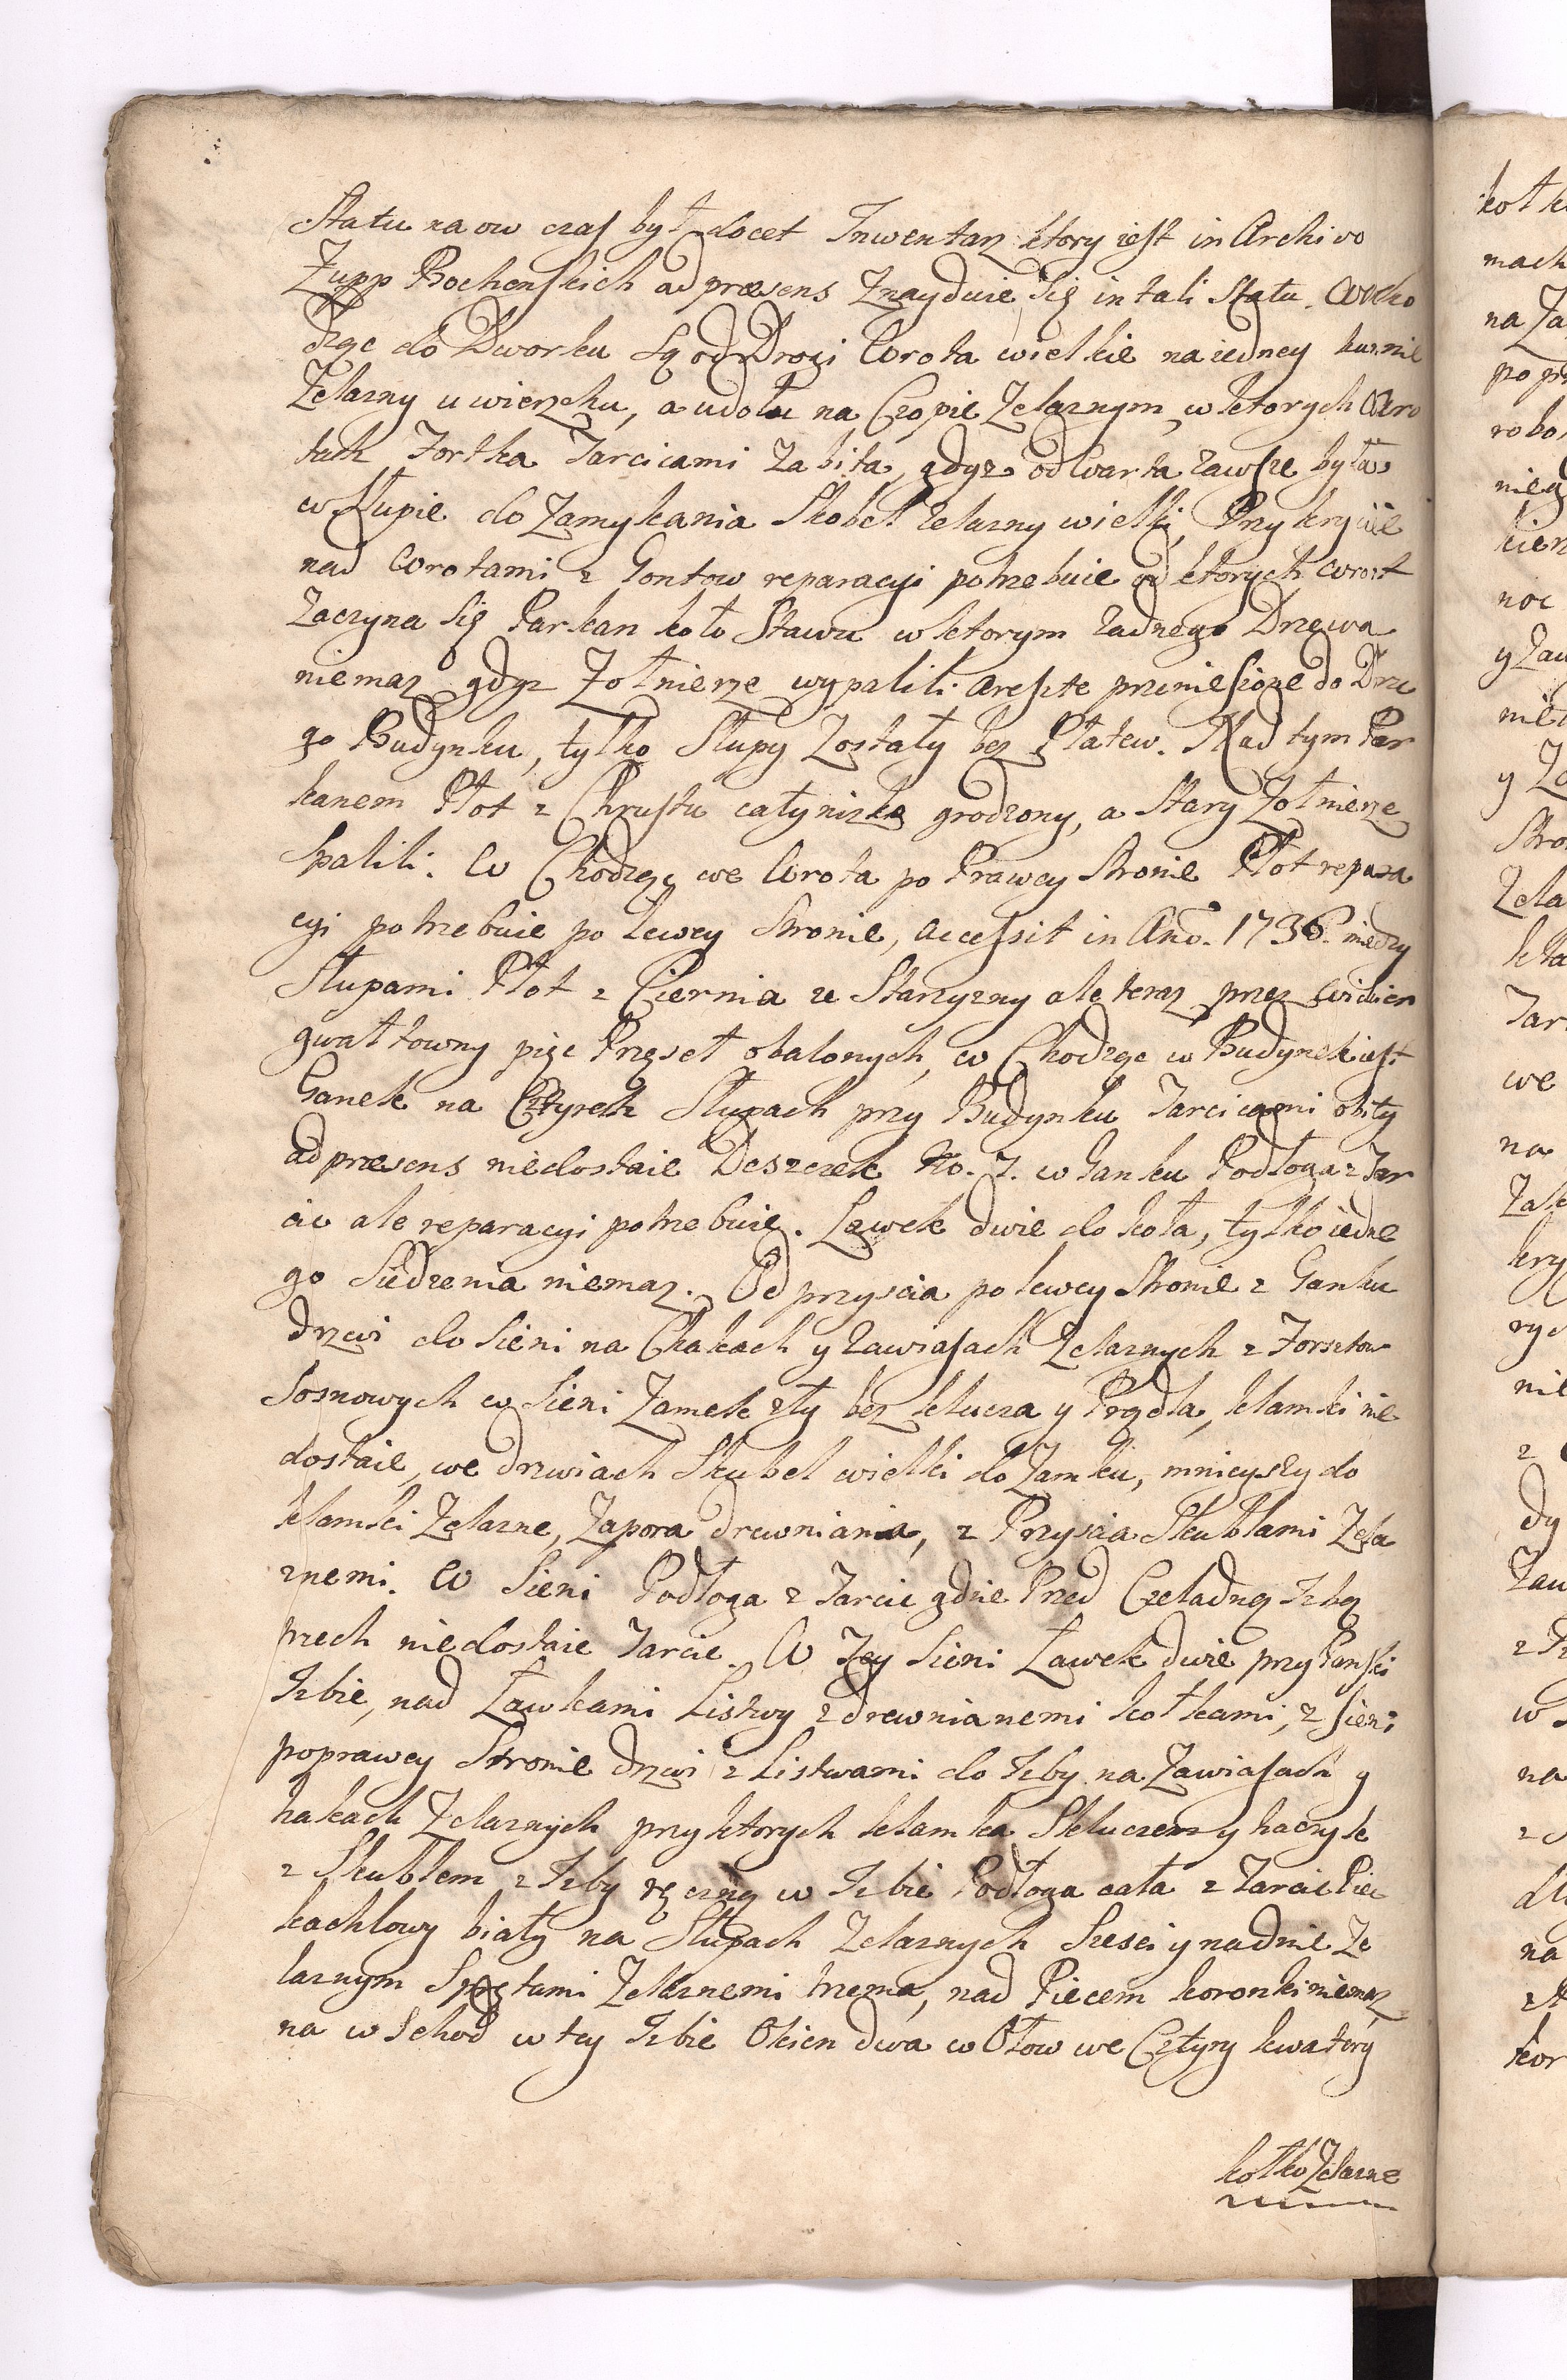 Statu na ow czas był docet Inwentarz ktory iest in Archivo
Zupp Bochenskich ad præsens Znayduie się in tali Statu. Wcho
dząc do Dworku są od Drogi Wrota wielkie na iedney kunie
Zelazny u wierzchu, a u dołu na Czopie Zelaznym, w ktorych Wro
tach Fortka Tarcicami Zabita, gdyz odwarta zawsze była
w Słupie do Zamykania Skobel zelazny wielki, Przykrycie
nad Wrotami z Gontow reparacyi potrzebuie od ktorych Wrot
Zaczyna się Parkan koło Stawu w ktorym zadnego Drzewa
niemasz gdyz Zołnierze wypalili a reszte przeniesione do Dru
go Budynku, tylko Słupy Zostały bez Płatew. Nad tym Par
kanem Płot z Chrustu cały nizko grodzony, a Stary Zołnierze
Spalili. W Chodząc we Wrota po Prawey Stronie Płot repara
cyi potrzebuie po Lewey Stronie, accessit in Ano. 1736. między
Słupami Płot z Ciernia ze Starzyzny ale teraz przez Wicher
gwałtowny pięc Przęseł obalonych, w Chodząc w Budynek iest
Ganek na Cztyrech Słupach przy Budynku Tarcicami obity
ad præsens niedostaie Deszczek No. 7. w Ganku Podłoga z Tar
cic ale reparacyi potrzebuie. Ławek dwie do koła, tylko iedne
go Siedzenia niemasz. Od przyscia po lewey Stronie z Ganku
drzwi do Sieni na Chakach y Zawiasach Zelaznych z Forsztow
Sosnowych w Sieni Zamek zły bez klucza y Prądła, klamki nie
dostaie, we drzwiach Skubel wielki do Zamku, mnieyszy do
klamki Zelazne, Zapora drewniana, z Przyscia Skublami Zela
znemi. W Sieni Podłoga z Tarcic gdzie Przed Czeladną Izbą
trzech niedostaie Tarcic. W Tey Sieni Ławek dwie przy Panski
Izbie, nad Ławkami Listwy z drewnianemi kołkami, z Sieni
po prawey Stronie drzwi z Listwami do Izby na Zawiasach y
hakach Zelaznych przy ktorych klamka S kluczem y haczyk
z Skublem z Izby ręczny w Izbie Podłoga cała z Tarcic Piec
kachlowy biały na Słupach Zelaznych Szesci y na dnie Ze
laznym Sprętami Zelaznemi trzema, nad Piecem koronki niemasz
na w Schod w tey Izbie Okien dwa w Ołow we Cztyry kwatery
kołko Zelazne